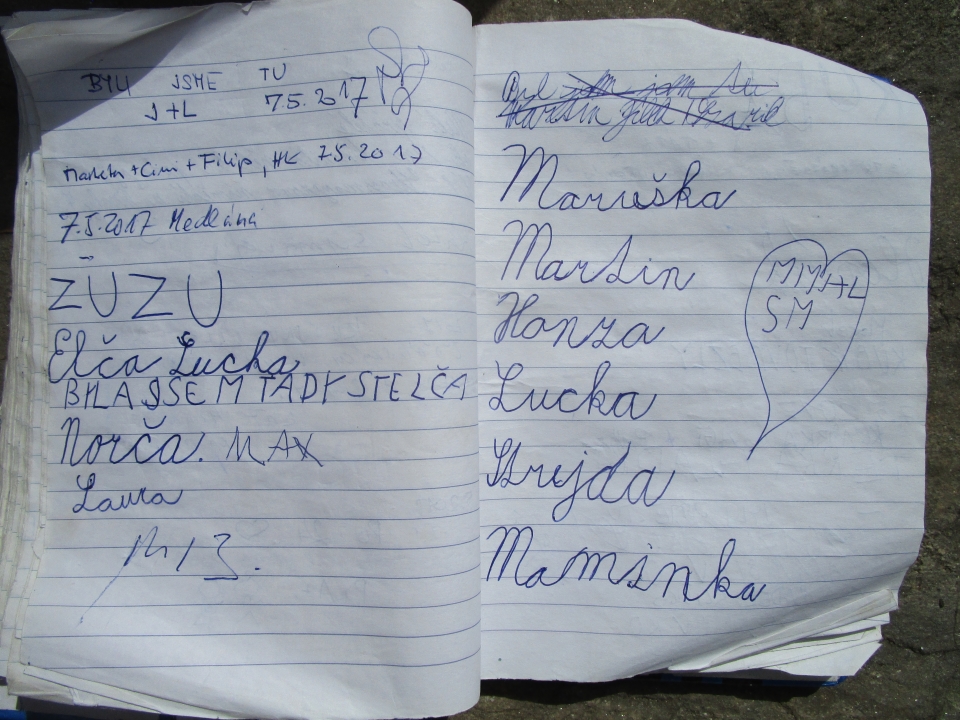 BYLI JSME TU
J+L 7.5.2017
Markéta + Cimi + Filip, HK 7.5.2017
7.5.2017 Medlánà
ZŪZU
Elča Lucka
BYLA JSEM TADY STELČA
Norča. MAX
Laura
Maruška
Martin
Honza
Lucka
Strejda
Maminka
MIMH+L
SM